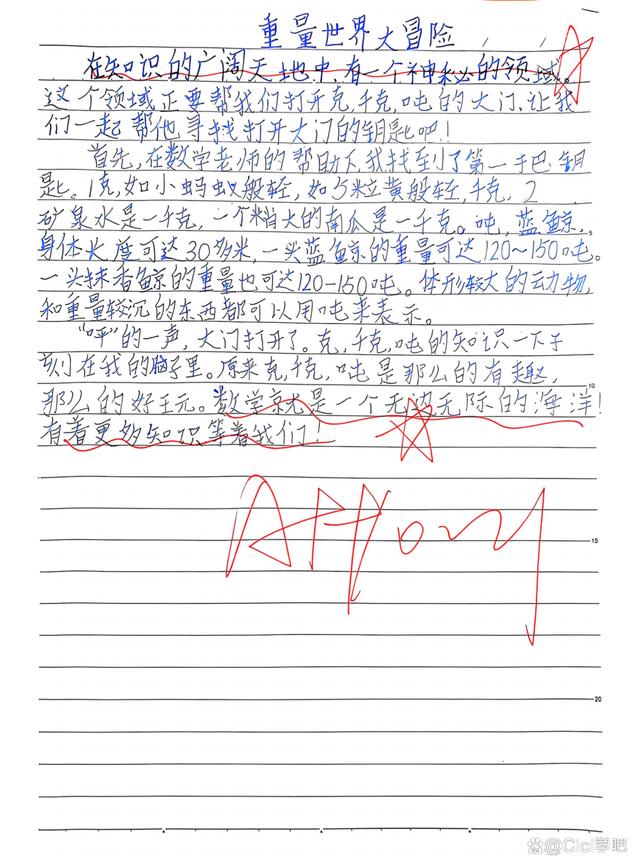 重量世界大冒险
在知识的广阔天地中,有一个神秘的领域。
这个领域正要帮我们打开克,千克,吨的大门,让我
们一起帮他寻找打开大门的钥匙吧!
首先,在数学老师的帮助下,我找到了第一把钥
匙。1克,如小蚂蚁般轻,如5粒黄般轻,千克,2
矿泉水是一千克,一个稍大的南瓜是一千克。吨,蓝鲸,
身体长度可达30多米,一头蓝鲸的重量可达120~150吨。
一头抹香鲸的重量也可达120-150吨。体形较大的动物,
和重量较沉的东西都可以用吨来表示。
"呯"的一声,大门打开了。克,千克,吨的知识一下子
刻在我的脑子里。原来克,千克,吨是那么的有趣,
那么的好玩。数学就是一个无边无际的海洋!
有着更多知识等着我们!
10
15
20
Cici学吧